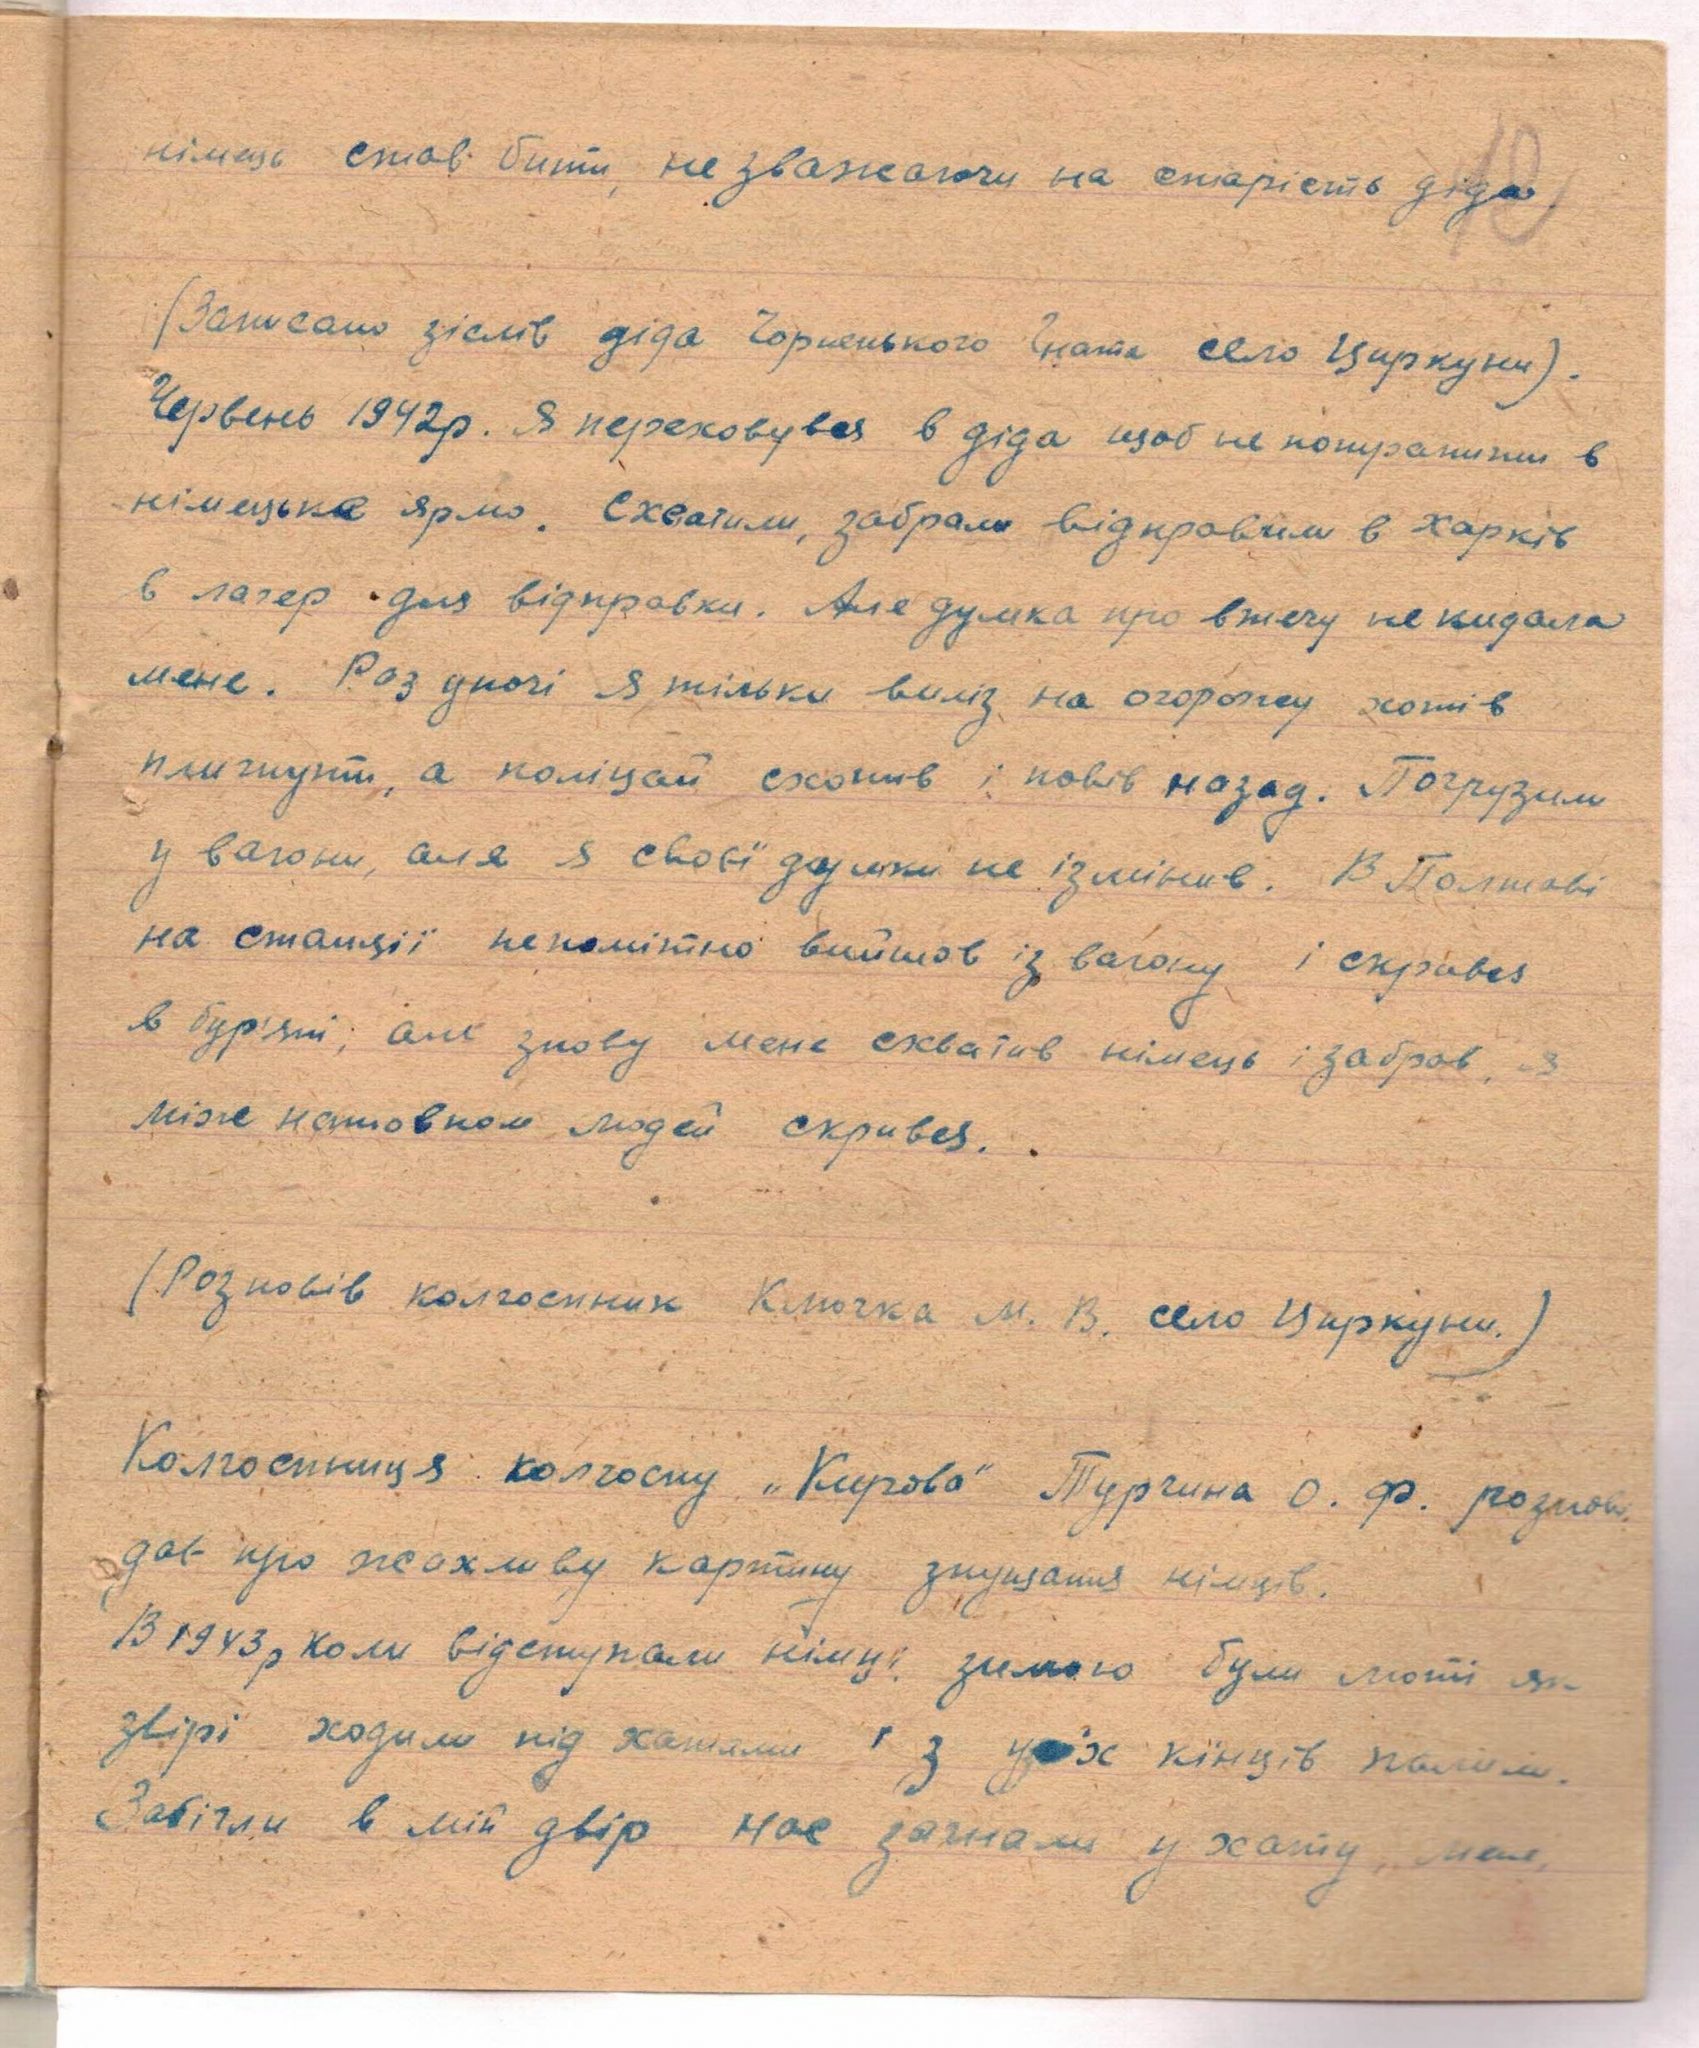 німець став бити, не зважаючи на старість діда.
(Записано зіслів діда Чорненького Гната село Циркуни).
Червень 1942р. Я переховувся в діда щоб не потрапити в
німецьке ярмо. Схватили, забрали відправили в Харків
в лагер для відправки. Але думка про втечу не кидала
мене. Раз уночі я тільки виліз на огорожу хотів
плигнути, а поліцай схопив і повів назад. Погрузили
у вагони, але я своєї думки не ізмінив. В Полтаві
на станції непомітно вийшов із вагону і скрився
в бур'яні, але знову мене схватив німець і забрав, я
між натовпом людей скрився.
(Розповів колгоспник Клочка М. В. село Циркуни.)
Колгоспниця колгоспу „Кирова" Турчина О. Ф. розпові
дає про жахливу картину знущання німців.
В 1943р коли відступали німці зимою були люті як
звірі ходили під хатами і з усіх кінців палили.
Забігли в мій двір нас загнали у хату, мене,